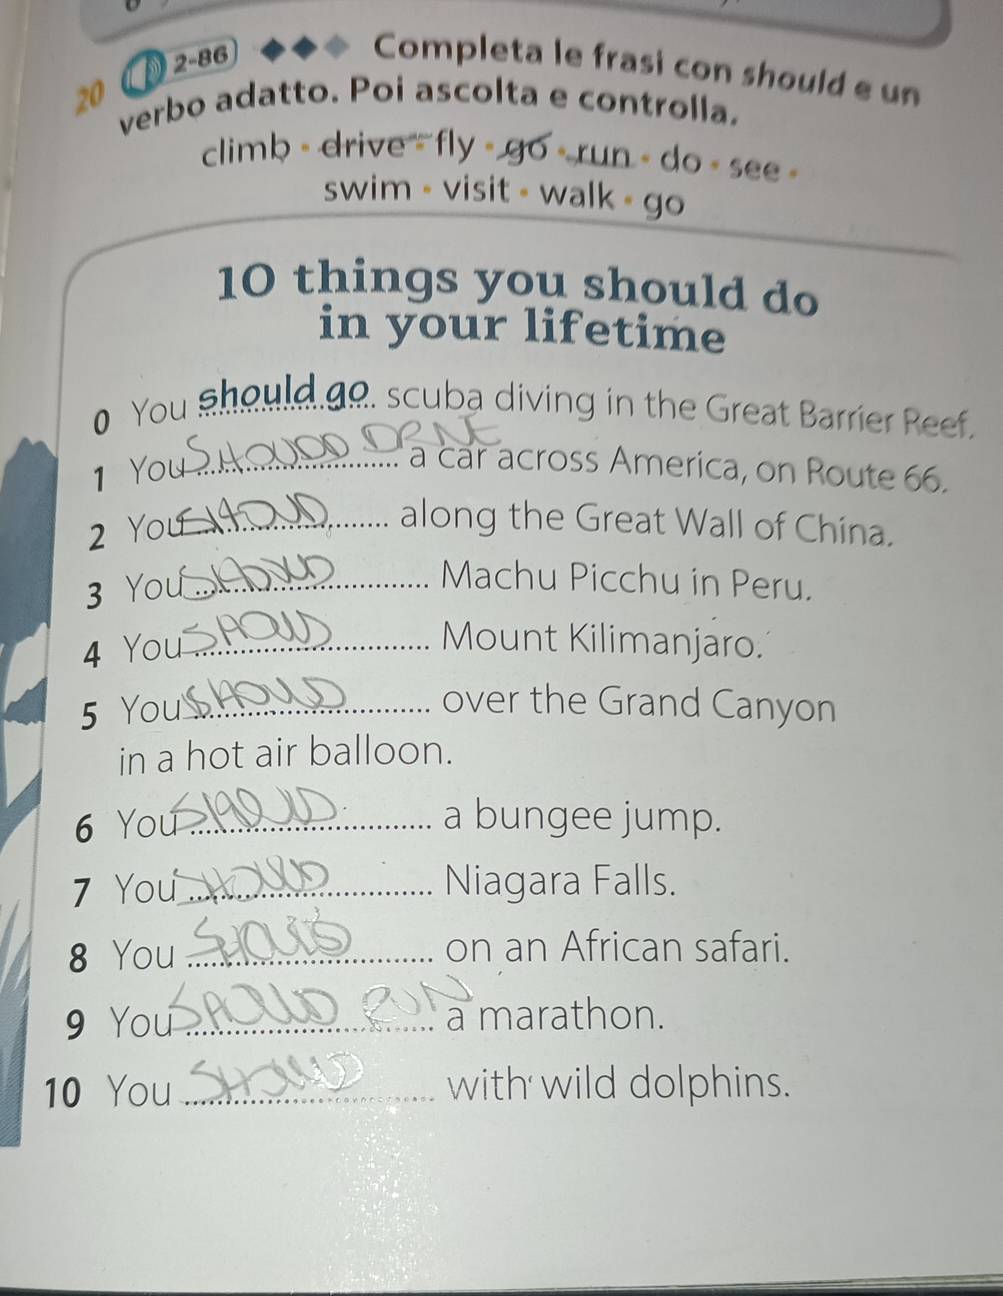 20 2-86 Completa le frasi con should e un
verbo adatto. Poi ascolta e controlla.
climb • drive • fly • go • run • do • see •
swim • visit • walk • go
10 things you should do
in your lifetime
0 You should go scuba diving in the Great Barrier Reef.
1 You SHOUOD DRNE a car across America, on Route 66.
2 You SHOUD along the Great Wall of China.
3 You SHOUD Machu Picchu in Peru.
4 You SHOUD Mount Kilimanjaro.
5 You SHOUD over the Grand Canyon
in a hot air balloon.
6 You SHOUD a bungee jump.
7 You SHOUD Niagara Falls.
8 You SHOUD on an African safari.
9 You SHOUD RUN a marathon.
10 You SHOUD with wild dolphins.